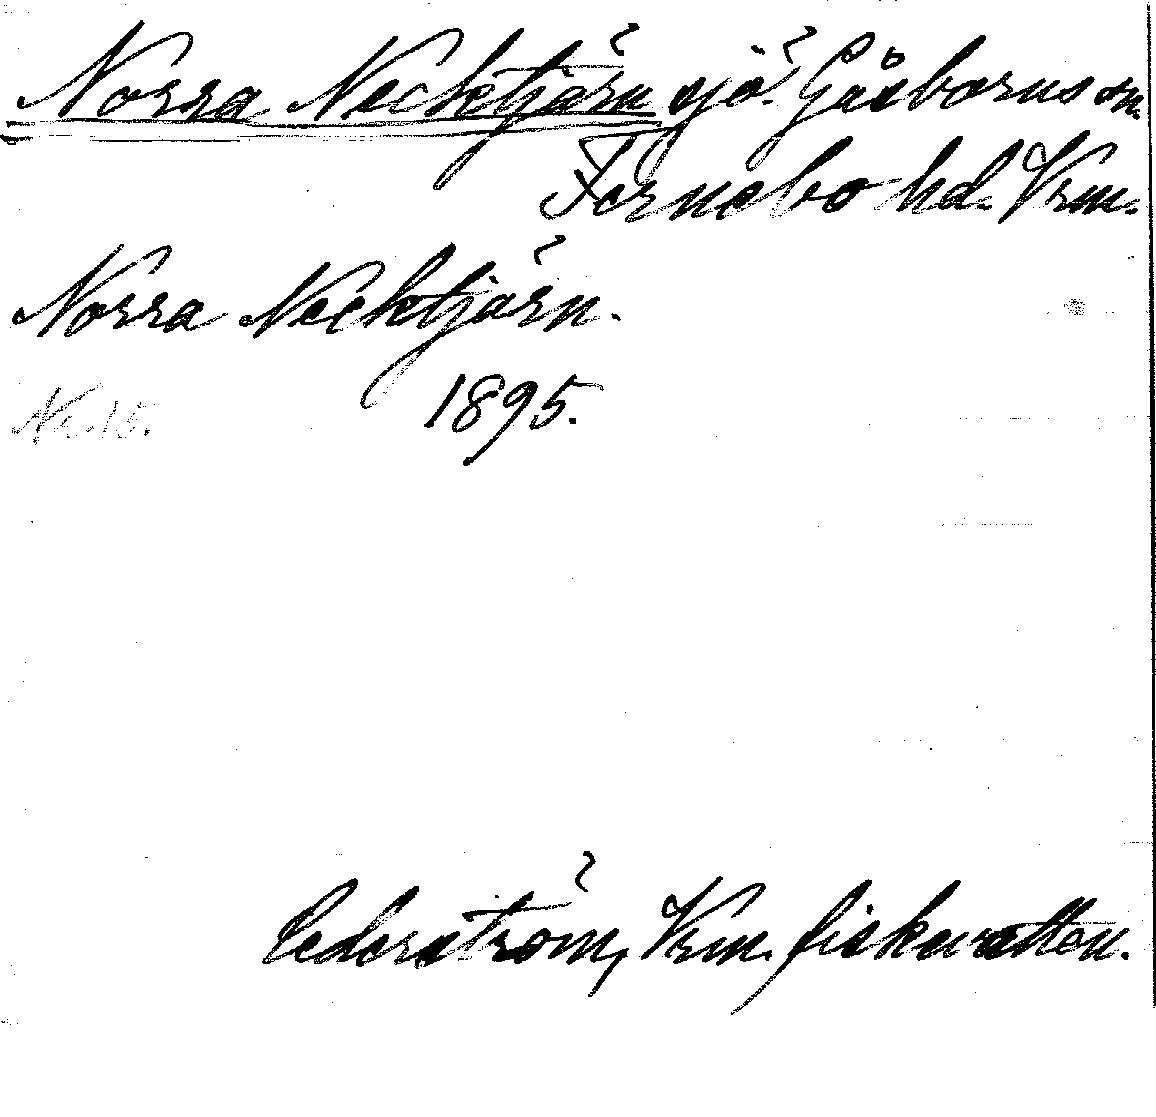 Norra Necktjärn sjö. Gåsborns sn.
Fernebo hd. Vrm.
Norra Necktjärn.
Nr. 15. 1895.
Cederström, Vrm. fiskevatten.